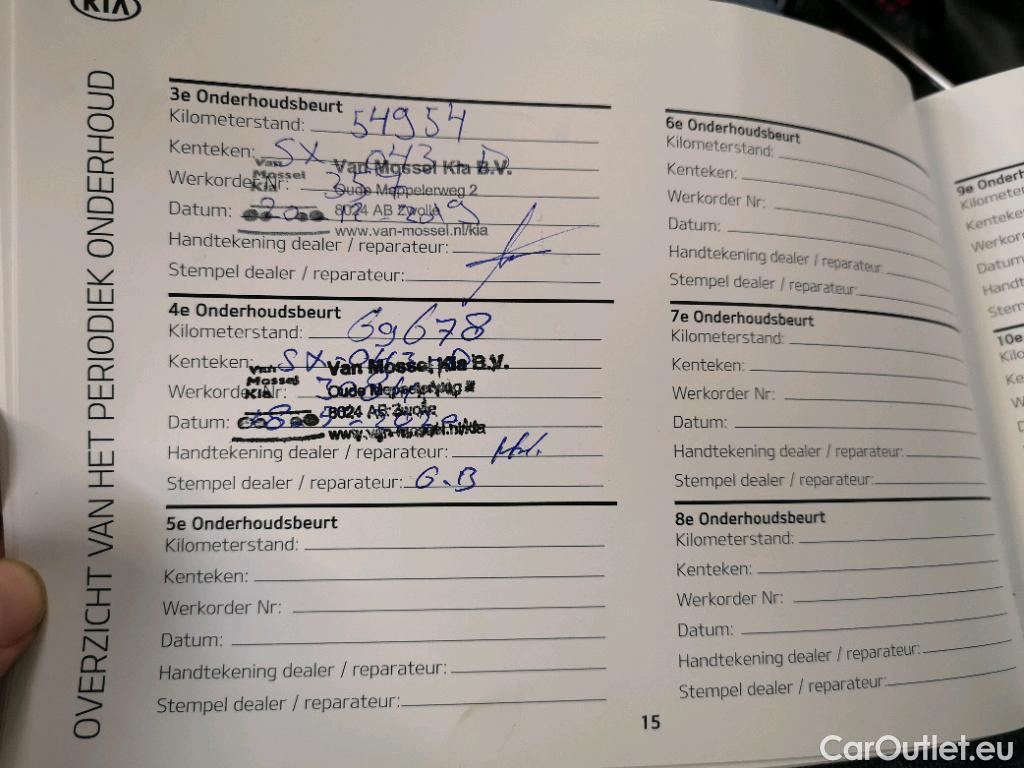 KIA
OVERZICHT VAN HET PERIODIEK ONDERHOUD
3e Onderhoudsbeurt
Kilometerstand: 54954
Kenteken: SX-043-D
Werkorder Nr:
Datum:
Handtekening dealer / reparateur:
Stempel dealer / reparateur:
Van Mossel Kia
Van Mossel Kia B.V.
Oude Meppelerweg 2
8024 AB Zwolle
www.van-mossel.nl/kia
4e Onderhoudsbeurt
Kilometerstand: 69678
Kenteken: SX-043-D
Werkorder Nr:
Datum:
Handtekening dealer / reparateur:
Stempel dealer / reparateur: G.B
Van Mossel Kia
Van Mossel Kia B.V.
Oude Meppelerweg 2
8024 AB Zwolle
www.van-mossel.nl/kia
5e Onderhoudsbeurt
Kilometerstand:
Kenteken:
Werkorder Nr:
Datum:
Handtekening dealer / reparateur:
Stempel dealer / reparateur:
6e Onderhoudsbeurt
Kilometerstand:
Kenteken:
Werkorder Nr:
Datum:
Handtekening dealer / reparateur:
Stempel dealer / reparateur:
7e Onderhoudsbeurt
Kilometerstand:
Kenteken:
Werkorder Nr:
Datum:
Handtekening dealer / reparateur:
Stempel dealer / reparateur:
8e Onderhoudsbeurt
Kilometerstand:
Kenteken:
Werkorder Nr:
Datum:
Handtekening dealer / reparateur:
Stempel dealer / reparateur:
15
9e Onderh
Kilometer
Kenteke
Werkor
Datum
Handt
Stem
10e
Kilo
Ke
W
D
CarOutlet.eu